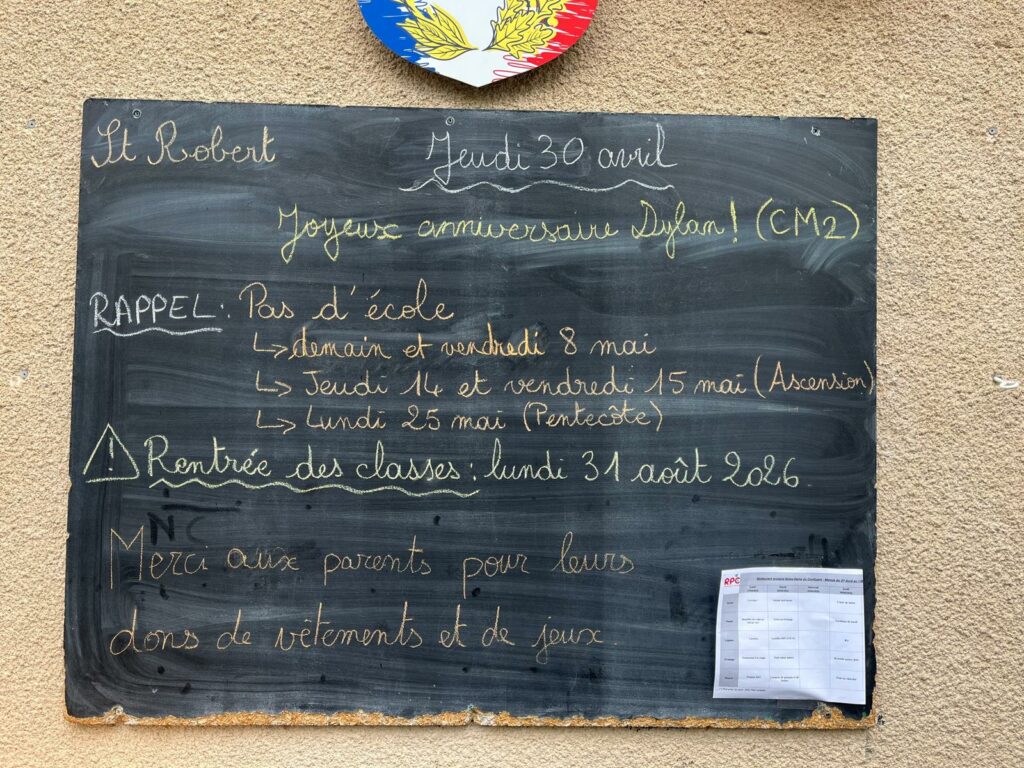 St Robert
Jeudi 30 avril
Joyeux anniversaire Dylan! (CM2)
RAPPEL: Pas d'école
↳ demain et vendredi 8 mai
↳ Jeudi 14 et vendredi 15 mai (Ascension)
↳ Lundi 25 mai (Pentecôte)
⚠ Rentrée des classes : lundi 31 août 2026
NC
Merci aux parents pour leurs
dons de vêtements et de jeux.
RPC